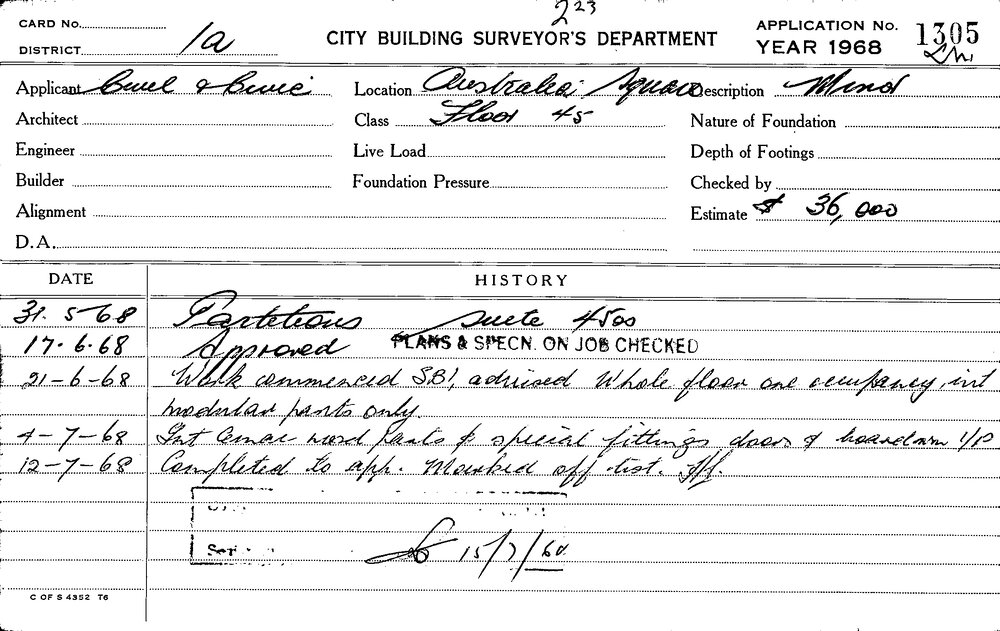 CARD No. 223
DISTRICT 1a
CITY BUILDING SURVEYOR'S DEPARTMENT
APPLICATION No. 1305
YEAR 1968
Applicant Civil & Civic Location Australia Square Description Minor
Architect Class Floor 45 Nature of Foundation
Engineer Live Load Depth of Footings
Builder Foundation Pressure Checked by
Alignment Estimate $ 36,000
D.A.
DATE HISTORY
31. 5-68 Partitions Suite 4500
17.6.68 Approved PLANS & SPECN. ON JOB CHECKED
21-6-68 Work commenced SBI, advised whole floor one occupancy, int
modular parts only.
4-7-68 Int wood parts & special fittings doors & boardrm I/P
12-7-68 Completed to app. Marked off list.
15/7/68
C OF S 4352 T6